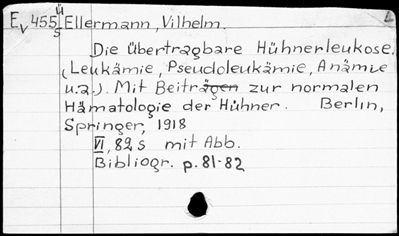 E, 455 ü Ellermann, Vilhelm.
s
Die übertragbare Hühnerleukose.
(Leukämie, Pseudoleukämie, Anämie
u.a.). Mit Beiträgen zur normalen
Hämatologie der Hühner. Berlin,
Springer, 1918
VI, 82 s mit Abb.
Bibliogr. p. 81-82